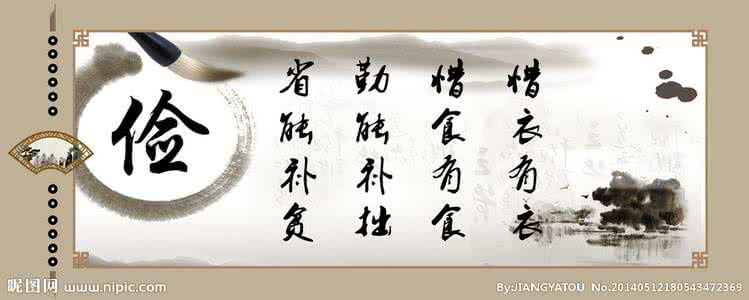 惜衣有衣
惜食有食
勤能补拙
省能补贫
俭
昵图网 www.nipic.com
By:JIANGYATOU No.20140512180543472369